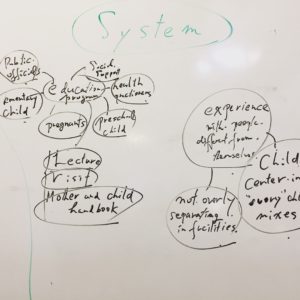 System
Public
officials
Social
support
education
program
health
elementary
child
pregnants
preschool
child
Lecture
Visit
Mother and child
handbook
experience
with people
different from
themselves
not overly
separating
in facilities
Child
Center-in
"every"
mixes